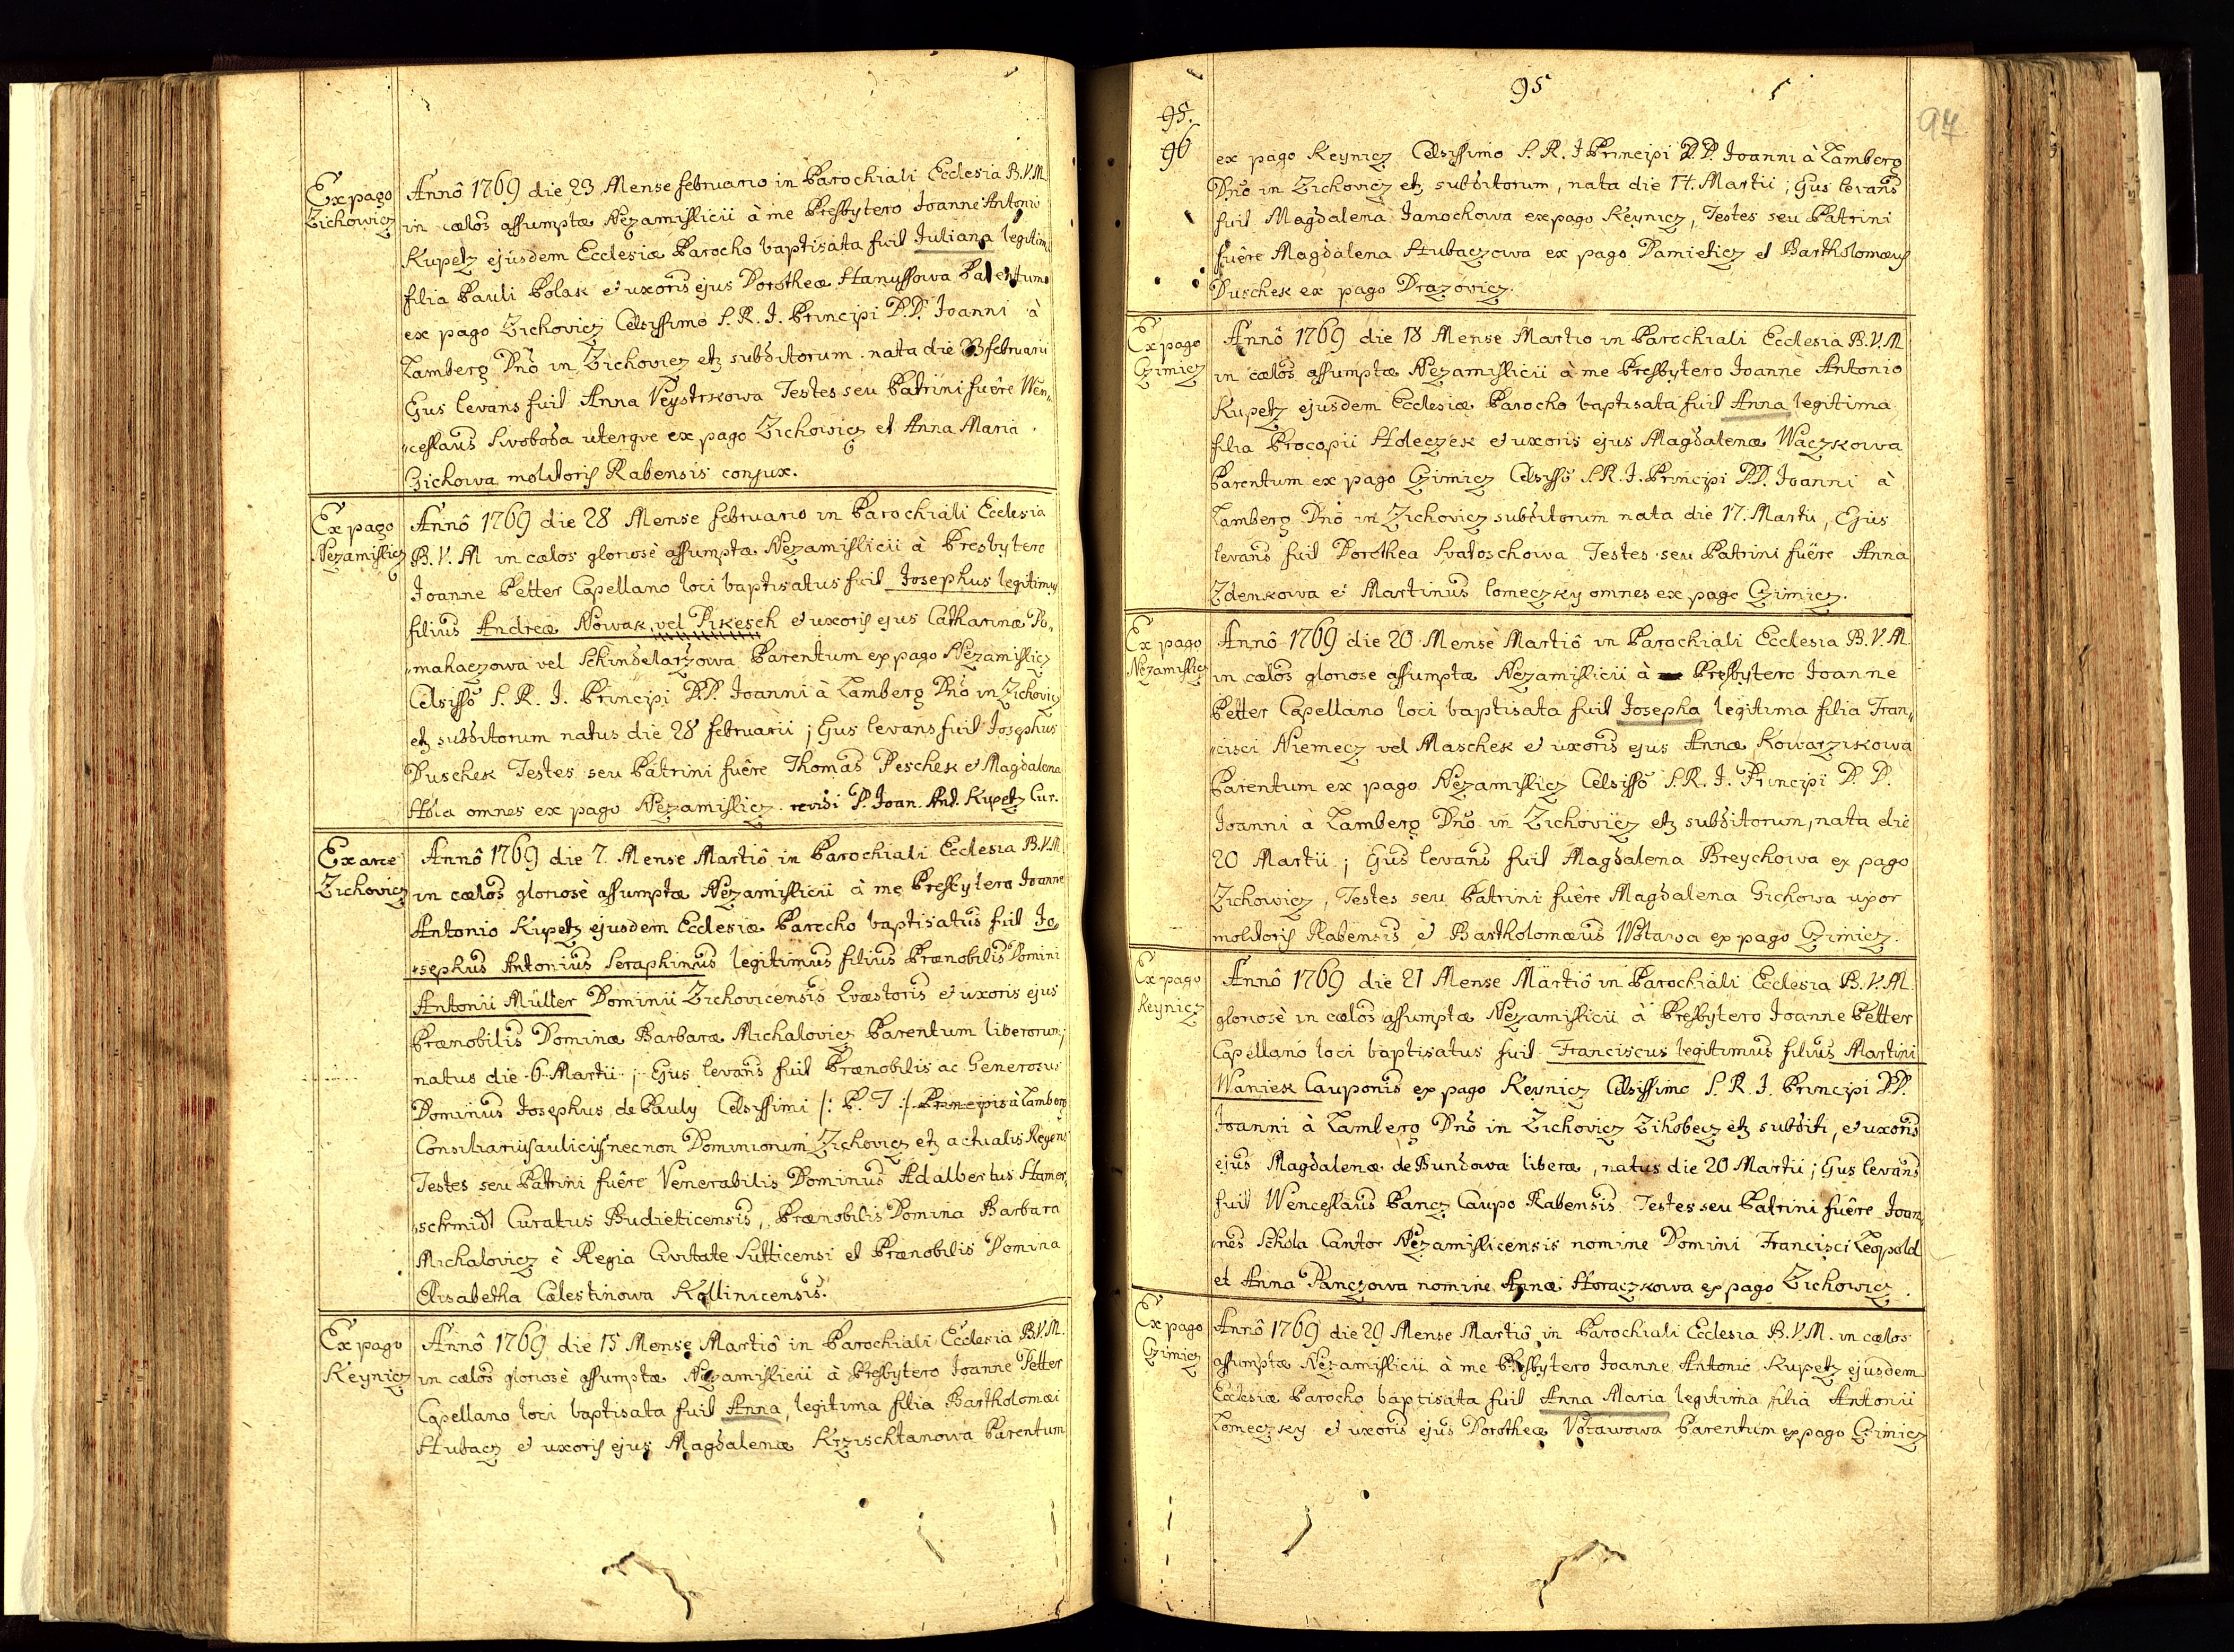 Ex pago
Zichowicz
Annô 1769 die 23 Mense februario in Parochiali Ecclesia B.V.M.
in cælos assumptæ Nezamislicii à me Presbytero Joanne Antonio
Kupetz ejusdem Ecclesiæ Parocho baptisata fuit Juliana legitima
filia Pauli Polak et uxoris ejus Dorotheæ Hanussowa Parentum
ex pago Zichovicz Celsissimo S. R. I. Principi D.D. Joanni à
Lamberg Dnō in Zichovicz etz subditorum. nata die 23 februarii
Ejus levans fuit Anna Veystrkowa Testes seu Patrini fuêre Wen„
„ceslaus Swoboda uterque ex pago Zichowicz et Anna Maria
Gichowa molitoris Rabensis conjux.
Ex pago
Nezamislicz
Annô 1769 die 28 Mense februario in Parochiali Ecclesia
B. V. M in cælos gloriosè assumptæ Nezamislicii à Presbytero
Joanne Petter Capellano loci baptisatus fuit Josephus legitimus
filius Andreæ Nowak vel Pikesch et uxoris ejus Catharinæ R„
„mahaczowa vel Schindelarzowa Parentum ex pago Nezamislicz
Celsissō S. R. I. Principi D.D. Joanni à Lamberg Dnō in Zichovicz
etz subditorum natus die 28 februarii ; Ejus levans fuit Josephus
Duschek Testes seu Patrini fuêre Thomas Peschek et Magdalena
omnes ex pago Nezamislicz. revidi P. Joan. Ant. Kupetz Cur.
Ex arce
Zichovicz
Annô 1769 die 7. Mense Martiô in Parochiali Ecclesia B.V.M
in cælos gloriosè assumptæ Nezamislicii à me Presbytero Joanne
Antonio Kupetz ejusdem Ecclesiæ Parocho baptisatus fuit Jo„
„sephus Antonius Seraphinus legitimus filius Prænobilis Domini
Antonii Müller Dominii Zichovicensis Quæstoris et uxoris ejus
Prænobilis Dominæ Barbaræ Michalovicz Parentum liberorum;
natus die 6 Martii ; Ejus levans fuit Prænobilis ac Generosus
Dominus Josephus de Pauly Celsissimi /: P. T :/ Principis à Lamberg
Consiliarius aulicus necnon Dominiorum Zichovicz etz actualis Regens
Testes seu Patrini fuêre Venerabilis Dominus Adalbertus Hamer„
„schmidt Curatus Budieticensis, Prænobilis Domina Barbara
Michalovicz è Regia Civitate Sutticensi et Prænobilis Domina
Elisabetha Cælestinowa Kollinicensis.
Ex pago
Keynicz
Annô 1769 die 15 Mense Martiô in Parochiali Ecclesia B.V.M.
in cælos gloriosè assumptæ Nezamislicii à Presbytero Joanne Petter
Capellano loci baptisata fuit Anna, legitima filia Bartholomæi
Hubacz et uxoris ejus Magdalenæ Krzischtanowa Parentum
95
95.
96
94
ex pago Keynicz Celsissimo S. R. I Principi D. D. Joanni à Lamberg
Dnō in Zichovicz etz subditorum, nata die 14. Martii ; Ejus levans
fuit Magdalena Janochowa ex pago Keynicz, Testes seu Patrini
fuêre Magdalena Hubaczowa ex pago Damieticz et Bartholomæus
Duschek ex pago Drazovicz.
Ex pago
Czimicz
Annô 1769 die 18 Mense Martio in Parochiali Ecclesia B.V.M
in cælos assumptæ Nezamislicii à me Presbytero Joanne Antonio
Kupetz ejusdem Ecclesiæ Parocho baptisata fuit Anna legitima
filia Procopii Holeczek et uxoris ejus Magdalenæ Waczkowa
Parentum ex pago Czimicz Celsissō S.R.I. Principi D.D. Joanni à
Lamberg Dnō in Zichovicz subditorum nata die 17. Martii, Ejus
levans fuit Dorothea Swatoschowa Testes seu Patrini fuêre Anna
Zdenkowa et Martinus Lomeczky omnes ex pago Czimicz.
Ex pago
Nezamislicz
Annô 1769 die 20 Mense Martiô in Parochiali Ecclesia B.V.M.
in cælos gloriose assumptæ Nezamislicii à Presbytero Joanne
Petter Capellano loci baptisata fuit Josepha legitima filia Fran„
„cisci Niemecz vel Maschek et uxoris ejus Annæ Kowarzikowa
Parentum ex pago Nezamislicz Celsissō S.R.I. Principi D. D.
Joanni à Lamberg Dnō in Zichovicz etz subditorum, nata die
20 Martii ; Ejus levans fuit Magdalena Breychowa ex pago
Zichowicz, Testes seu Patrini fuêre Magdalena Gichowa uxor
molitoris Rabensis et Bartholomæus Wotawa ex pago Czimicz.
Ex pago
Keynicz
Annô 1769 die 21 Mense Martiô in Parochiali Ecclesia B.V.M.
gloriosè in cælos assumptæ Nezamislicii à Presbytero Joanne Petter
Capellano loci baptisatus fuit Franciscus legitimus filius Martini
Waniek Cauponis ex pago Keynicz Celsissimo S. R. I. Principi D.D.
Joanni à Lamberg Dnō in Zichovicz Zihobecz etz subditi, et uxoris
ejus Magdalenæ de Bundowa liberæ, natus die 20 Martii ; Ejus levans
fuit Wenceslaus Pancz Caupo Rabensis Testes seu Patrini fuêre Joan„
„nes Schola Cantor Nezamislicensis nomine Domini Francisci Leopold
et Anna Panczowa nomine Annæ Horaczkowa ex pago Zichowicz.
Ex pago
Czimicz
Annô 1769 die 29 Mense Martiô in Parochiali Ecclesia B.V.M. in cælos
assumptæ Nezamislicii à me Presbytero Joanne Antonio Kupetz ejusdem
Ecclesiæ Parocho baptisata fuit Anna Maria legitima filia Antonii
Lomeczky et uxoris ejus Dorotheæ Votawowa Parentum ex pago Czimicz